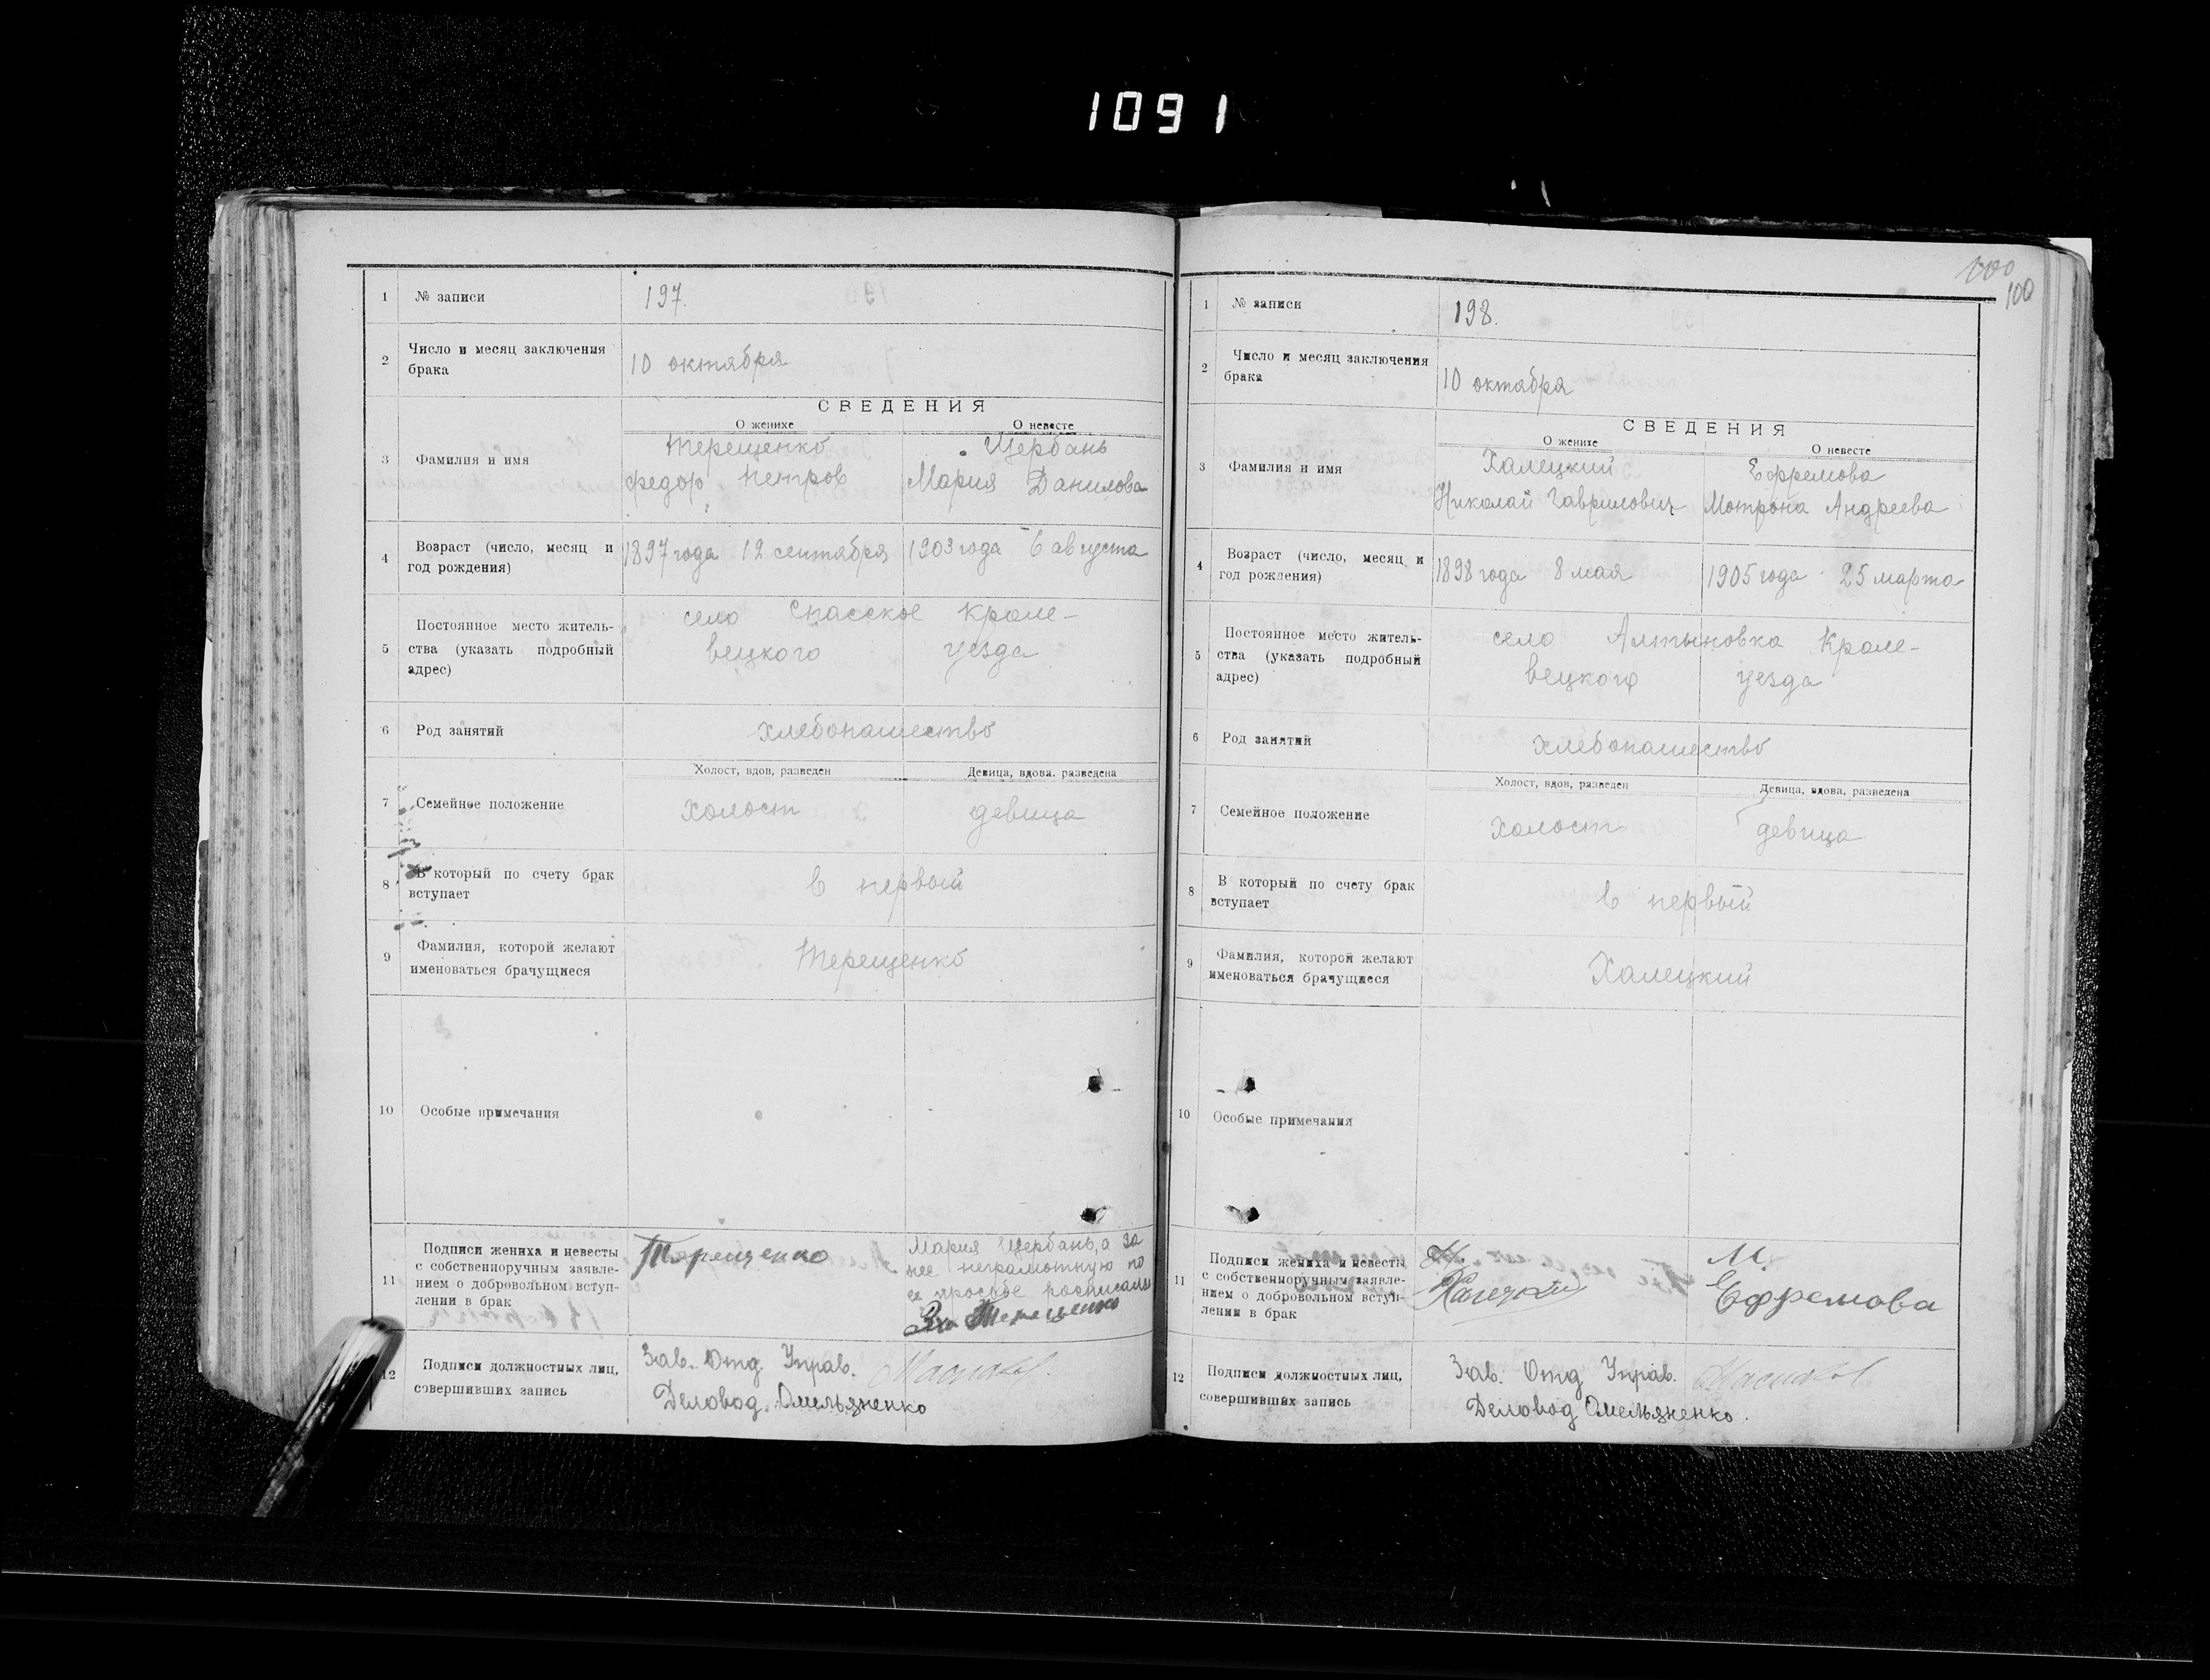 1091
1 № записи 197.
2 Число и месяц заключения
брака
10 октября
СВЕДЕНИЯ
О женихе О невесте
3 Фамилия и имя
Терещенко Щербань
федор петров Мария Данилова
4 Возраст (число, месяц и
год рождения)
1897 года 12 сентября 1903 года 6 августа
5 Постоянное место житель-
ства (указать подробный
адрес)
село Спасское Кроле-
вецкого уезда
6 Род занятий хлебопашество
Холост, вдов, разведен Девица, вдова, разведена
7 Семейное положение холост девица
8 В который по счету брак
вступает
в первый
9 Фамилия, которой желают
именоваться брачущиеся
Терещенко
10 Особые примечания
11 Подписи жениха и невесты
с собственноручным заявле-
нием о добровольном вступ-
лении в брак
Терещенко
Мария Щербань, а за
нее неграмотную по
ее просьбе росписался
Терещенко
12 Подписи должностных лиц,
совершивших запись
Зав. Отд. Управ.
Деловод. Омельяненко
100
100
1 № записи 198.
2 Число и месяц заключения
брака
10 октября
СВЕДЕНИЯ
О женихе О невесте
3 Фамилия и имя
Халецкий Ефремова
Николай Гаврилович Мотрона Андреева
4 Возраст (число, месяц и
год рождения)
1898 года 8 мая 1905 года 25 марта
5 Постоянное место житель-
ства (указать подробный
адрес)
село Алтыновка Кроле-
вецкого уезда
6 Род занятий хлебопашество
Холост, вдов, разведен Девица, вдова, разведена
7 Семейное положение холост девица
8 В который по счету брак
вступает
в первый
9 Фамилия, которой желают
именоваться брачущиеся
Халецкий
10 Особые примечания
11 Подписи жениха и невесты
с собственноручным заявле-
нием о добровольном вступ-
лении в брак
Н.
Халецкий
М.
Ефремова
12 Подписи должностных лиц,
совершивших запись
Зав. Отд Управ.
Деловод Омельяненко.